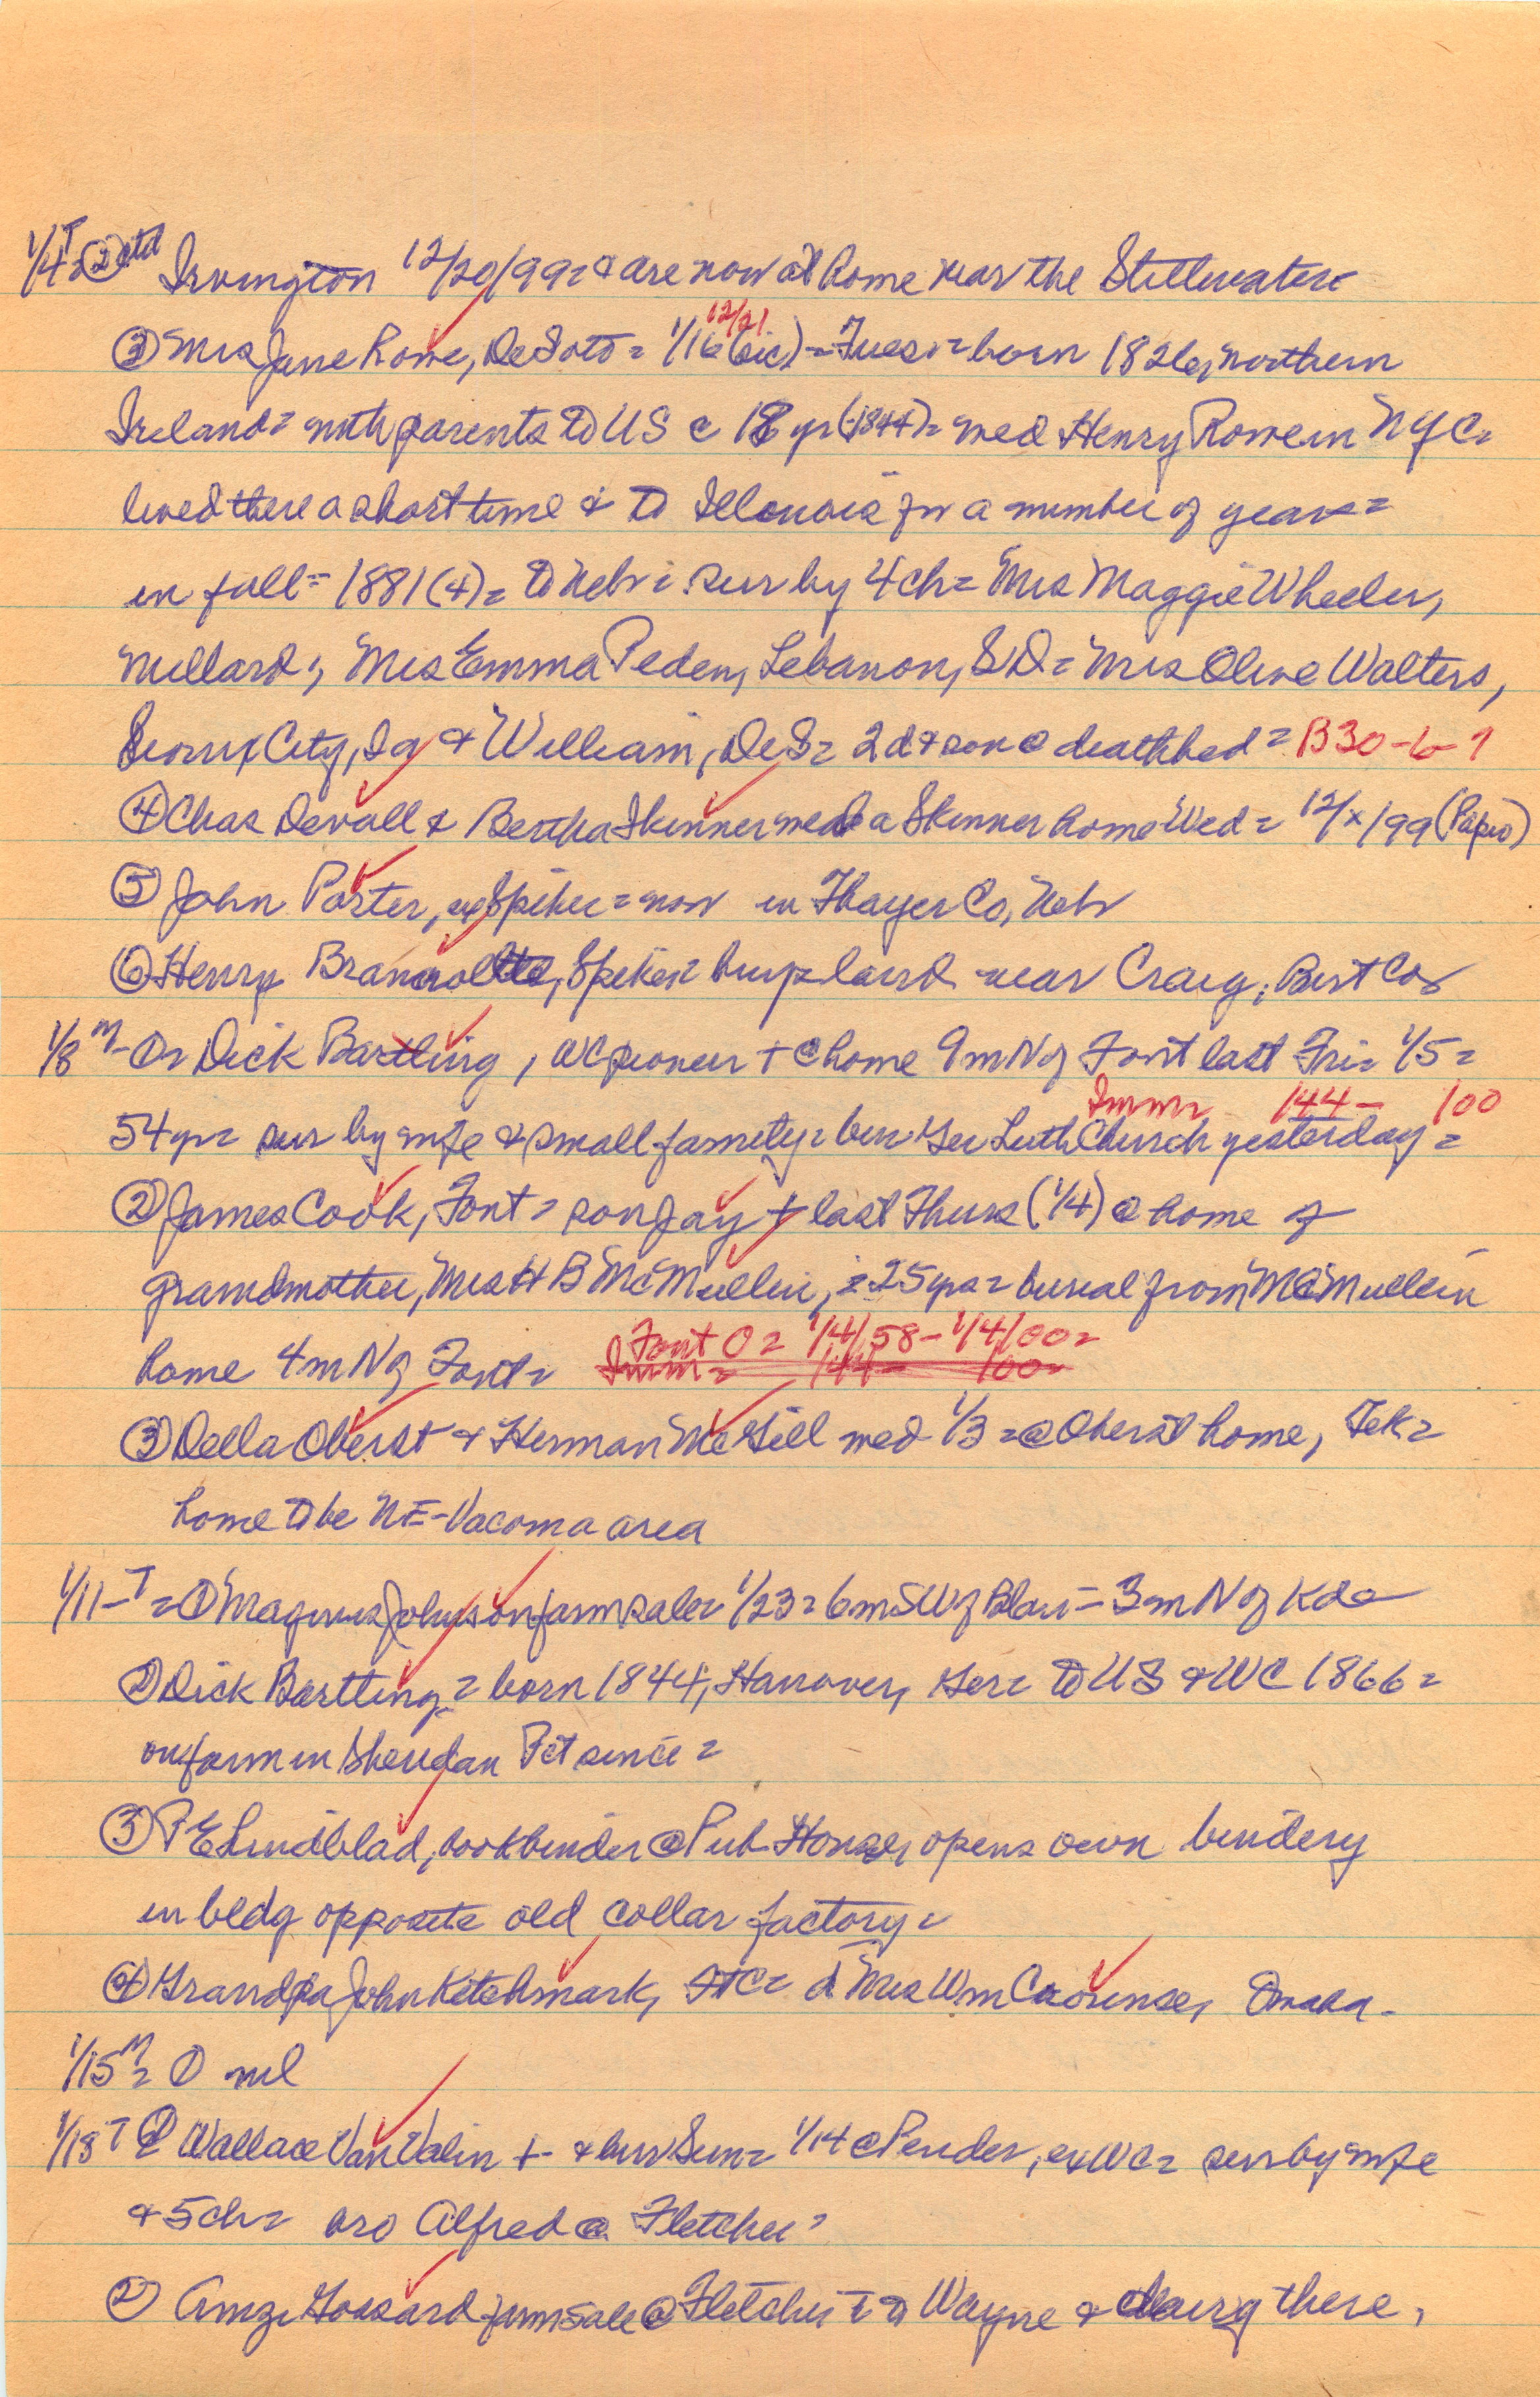 1/4 T = ② ctd Irvington 12/20/99 = & are now at home near the Stillwaters
12/21
③ Mrs Jane Rowe, DeSoto = 1/16 (sic) = Tues = born 1826, northern
Ireland = with parents to US @ 18 yr (1844) = med Henry Rowe in NYC =
lived there a short time & to Illonois for a number of years =
in fall = 1881 (4) = to Neb = sur by 4 ch = Mrs Maggie Wheeler,
Millard; Mrs Emma Peden, Lebanon, SD = Mrs Olive Walters,
Sioux City, Ia & William, DeS = 2 d & son @ deathbed = B30-6-1
④ Chas Devall & Bertha Skinner med @ Skinner home Wed = 12/x/99 (Papio)
⑤ John Porter, ex Spiker = now in Thayer Co, Neb
⑥ Henry Spiker = buys land near Craig, Burt Co
1/8 M - ① = Dick Bartling, WC pioneer + @ home 9 m N of Font last Fri = 1/5 =
Imm = 144 - 100
54 yr = sur by wife & small family = bur Ger Luth Church yesterday =
② James Cook, Font = son Jay + last Thurs (1/4) @ home of
grandmother, Mrs H B McMullin, = 25 yrs = burial from McMullein
Font O = 1/4/58 - 1/4/00 =
home 4 m N of Font = Imm = 144 - 100 =
③ Della Oberst & Herman McGill med 1/3 = @ Oberst home, Tek =
home to be NE-Vacoma area
1/11 - T = ① Magnus Johnson farm sale = 1/23 = 6 m SW of Blair = 3 m N of Kd =
② Dick Bartling = born 1844, Hanover, Ger = to US & WC 1866 =
on farm in Sheridan Pct since =
③ P E Lindblad, bookbinder @ Pub House, opens own bindery
in bldg opposite old collar factory =
④ Grandpa John Ketchmark, FtC = d Mrs Wm Omaha -
1/15 M = ① nil
1/18 T ① Wallace Van Valin + & bur Sun = 1/14 @ Pender, ex WC = sur by wife
& 5 ch = bro Alfred @ Fletcher =
② Amzi Gossard farm sale @ Fletcher = to Wayne & there,